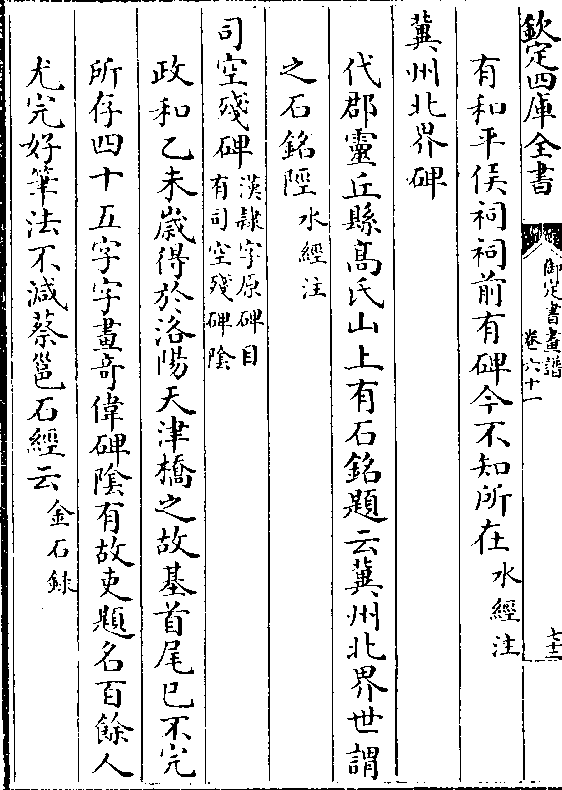 欽定四庫全書
御定書畫譜
卷六十一
七十二
有和平侯祠祠前有碑今不知所在水經注
冀州北界碑
代郡靈丘縣髙氏山上有石銘題云冀州北界世謂
之石銘陘水經注
司空殘碑漢隷字原碑目
有司空殘碑陰
政和乙未嵗得於洛陽天津橋之故基首尾已不完
所存四十五字字畫竒偉碑陰有故吏題名百餘人
尤完好筆法不減蔡邕石經云金石録